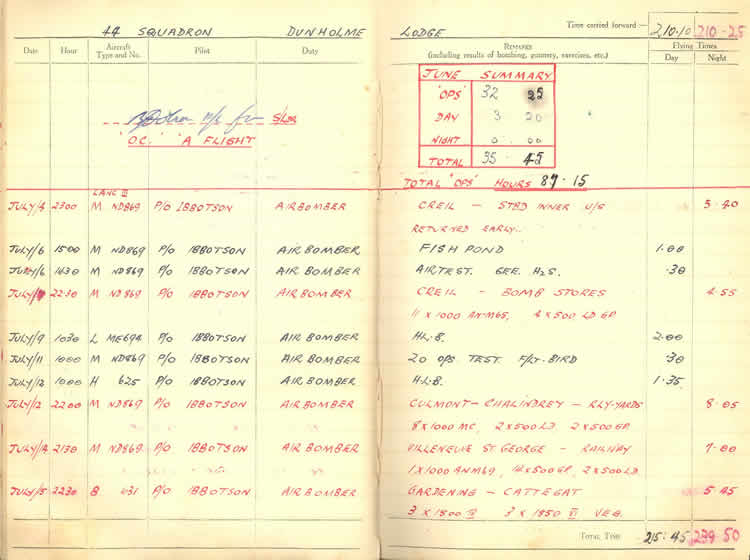 44 SQUADRON DUNHOLME LODGE Time carried forward :— 210·10 210·25
Date Hour Aircraft Type and No. Pilot Duty REMARKS (including results of bombing, gunnery, exercises, etc.) Flying Times Day Night
JUNE SUMMARY
'OPS' 32 25
DAY 3 20
NIGHT 0 00
TOTAL 35 45
for S/LDR
'O.C.' 'A FLIGHT
TOTAL 'OPS' HOURS 87·15
LANC III
JULY/4 2300 M ND869 P/O IBBOTSON AIR BOMBER CREIL — STBD INNER U/S 3·20
RETURNED EARLY.
JULY/6 1500 M ND869 P/O IBBOTSON AIR BOMBER FISH POND 1·00
JULY/6 1430 M ND869 P/O IBBOTSON AIR BOMBER AIRTEST. GEE. H2S. ·30
JULY/ 2230 M ND869 P/O IBBOTSON AIR BOMBER CREIL — BOMB STORES 4·55
11 X 1000 AN-M65, 4 X 500 LD GP.
JULY/9 1030 L ME694 P/O IBBOTSON AIR BOMBER H.L.B. 2·00
JULY/11 1000 M ND869 P/O IBBOTSON AIR BOMBER 20 OPS TEST. F/LT. BIRD ·30
JULY/12 1000 H 625 P/O IBBOTSON AIR BOMBER H.L.B. 1·35
JULY/12 2200 M ND869 P/O IBBOTSON AIR BOMBER CULMONT — CHALINDREY — RLY-YARDS 8·05
8 X 1000 MC, 2 X 500 LD. 2 X 500 GP.
JULY/14 2130 M ND869 P/O IBBOTSON AIR BOMBER VILLENEUVE ST GEORGE — RAILWAY 7·00
1 X 1000 ANM69, X 500 GP, 2 X 500 LD.
JULY/15 2230 B 631 P/O IBBOTSON AIR BOMBER GARDENING — CATTEGAT 5·45
3 X 1800 IV 3 X 1850 VI VEG.
TOTAL TIME 215·45 239·50